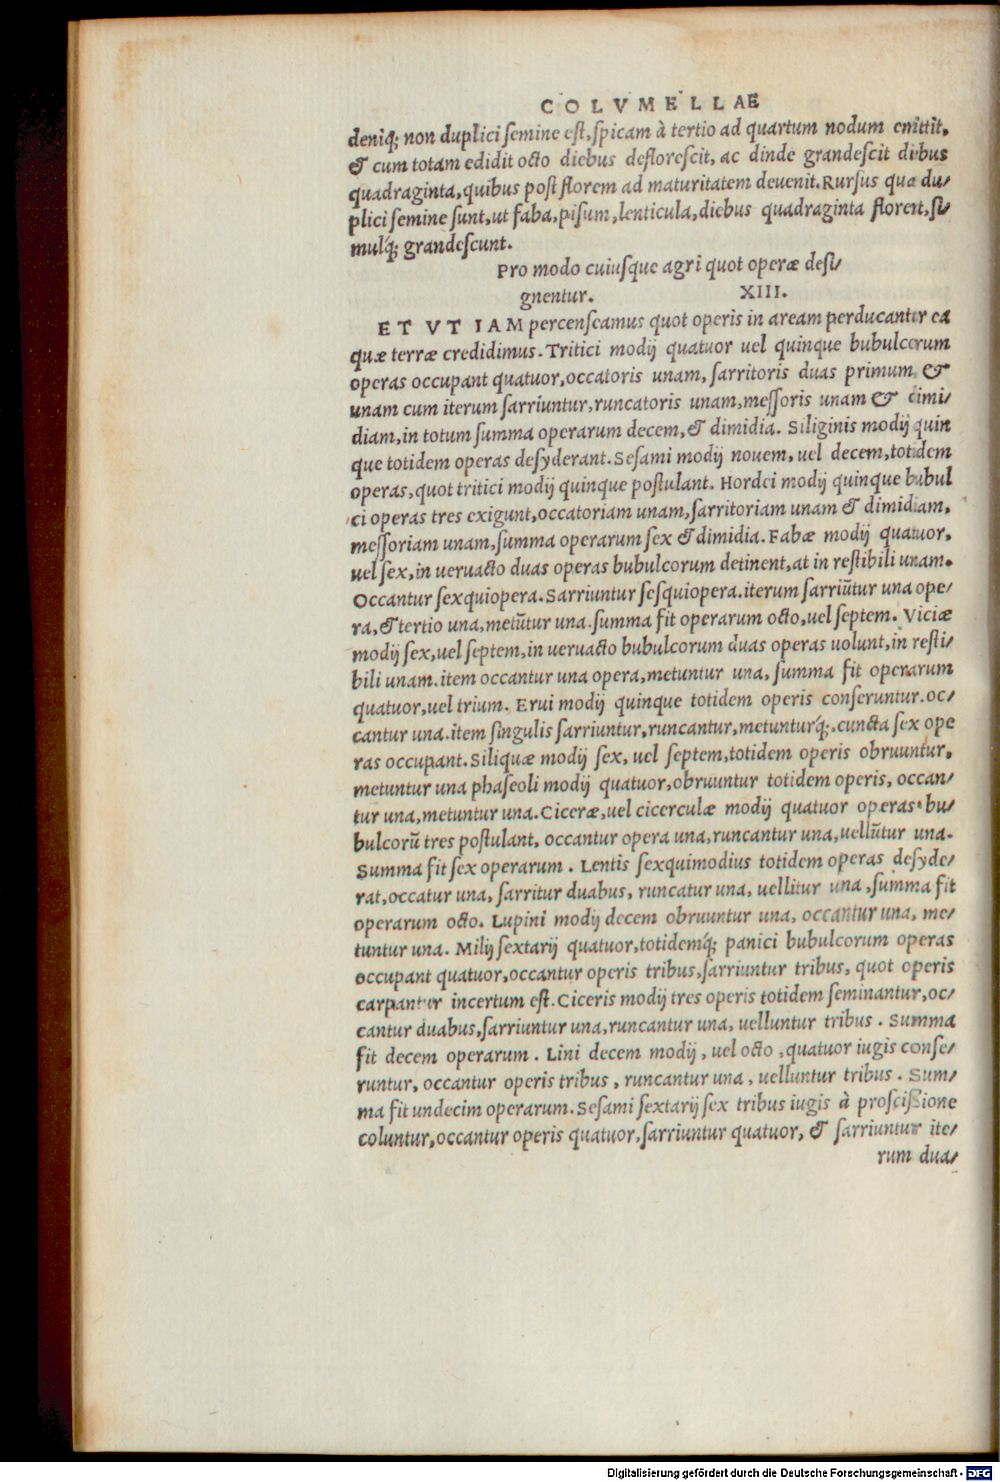 COLVMELLAE
deniq; non duplici semine est, spicam à tertio ad quartum nodum emittit,
& cum totam edidit octo diebus deflorescit, ac dinde grandescit diebus
quadraginta, quibus post florem ad maturitatem deuenit. Rursus quæ du/
plici semine sunt, ut faba, pisum, lenticula, diebus quadraginta florent, si/
mulq́; grandescunt.
Pro modo cuiusque agri quot operæ desi/
gnentur. XIII.
ET VT IAM percenseamus quot operis in aream perducantur ea
quæ terræ credidimus. Tritici modij quatuor uel quinque bubulcorum
operas occupant quatuor, occatoris unam, sarritoris duas primum, &
unam cum iterum sarriuntur, runcatoris unam, messoris unam & dimi/
diam, in totum summa operarum decem, & dimidia. Siliginis modij quin
que totidem operas desyderant. Sesami modij nouem, uel decem, totidem
operas, quot tritici modij quinque postulant. Hordei modij quinque bubul
ci operas tres exigunt, occatoriam unam, sarritoriam unam & dimidiam,
messoriam unam, summa operarum sex & dimidia. Fabæ modij quatuor,
uel sex, in ueruacto duas operas bubulcorum detinent, at in restibili unam.
Occantur sexquiopera. Sarriuntur sesquiopera. iterum sarriūtur una ope/
ra, & tertio una, metūtur una. summa fit operarum octo, uel septem. Viciæ
modij sex, uel septem, in ueruacto bubulcorum duas operas uolunt, in resti/
bili unam. item occantur una opera, metuntur una, summa fit operarum
quatuor, uel trium. Erui modij quinque totidem operis conseruntur. oc/
cantur una. item singulis sarriuntur, runcantur, metunturq́;. cuncta sex ope
ras occupant. Siliquæ modij sex, uel septem, totidem operis obruuntur,
metuntur una phaseoli modij quatuor, obruuntur totidem operis, occan/
tur una, metuntur una. Ciceræ, uel cicerculæ modij quatuor operas bu/
bulcorū tres postulant, occantur opera una, runcantur una, uellūtur una.
Summa fit sex operarum. Lentis sexquimodius totidem operas desyde/
rat, occatur una, sarritur duabus, runcatur una, uellitur una, summa fit
operarum octo. Lupini modij decem obruuntur una, occantur una, me/
tuntur una. Milij sextarij quatuor, totidemq́; panici bubulcorum operas
occupant quatuor, occantur operis tribus, sarriuntur tribus, quot operis
carpantur incertum est. Ciceris modij tres operis totidem seminantur, oc/
cantur duabus, sarriuntur una, runcantur una, uelluntur tribus. Summa
fit decem operarum. Lini decem modij, uel octo, quatuor iugis conse/
runtur, occantur operis tribus, runcantur una, uelluntur tribus. Sum/
ma fit undecim operarum. Sesami sextarij sex tribus iugis à proscissione
coluntur, occantur operis quatuor, sarriuntur quatuor, & sarriuntur ite/
rum dua/
Digitalisierung gefördert durch die Deutsche Forschungsgemeinschaft - DFG